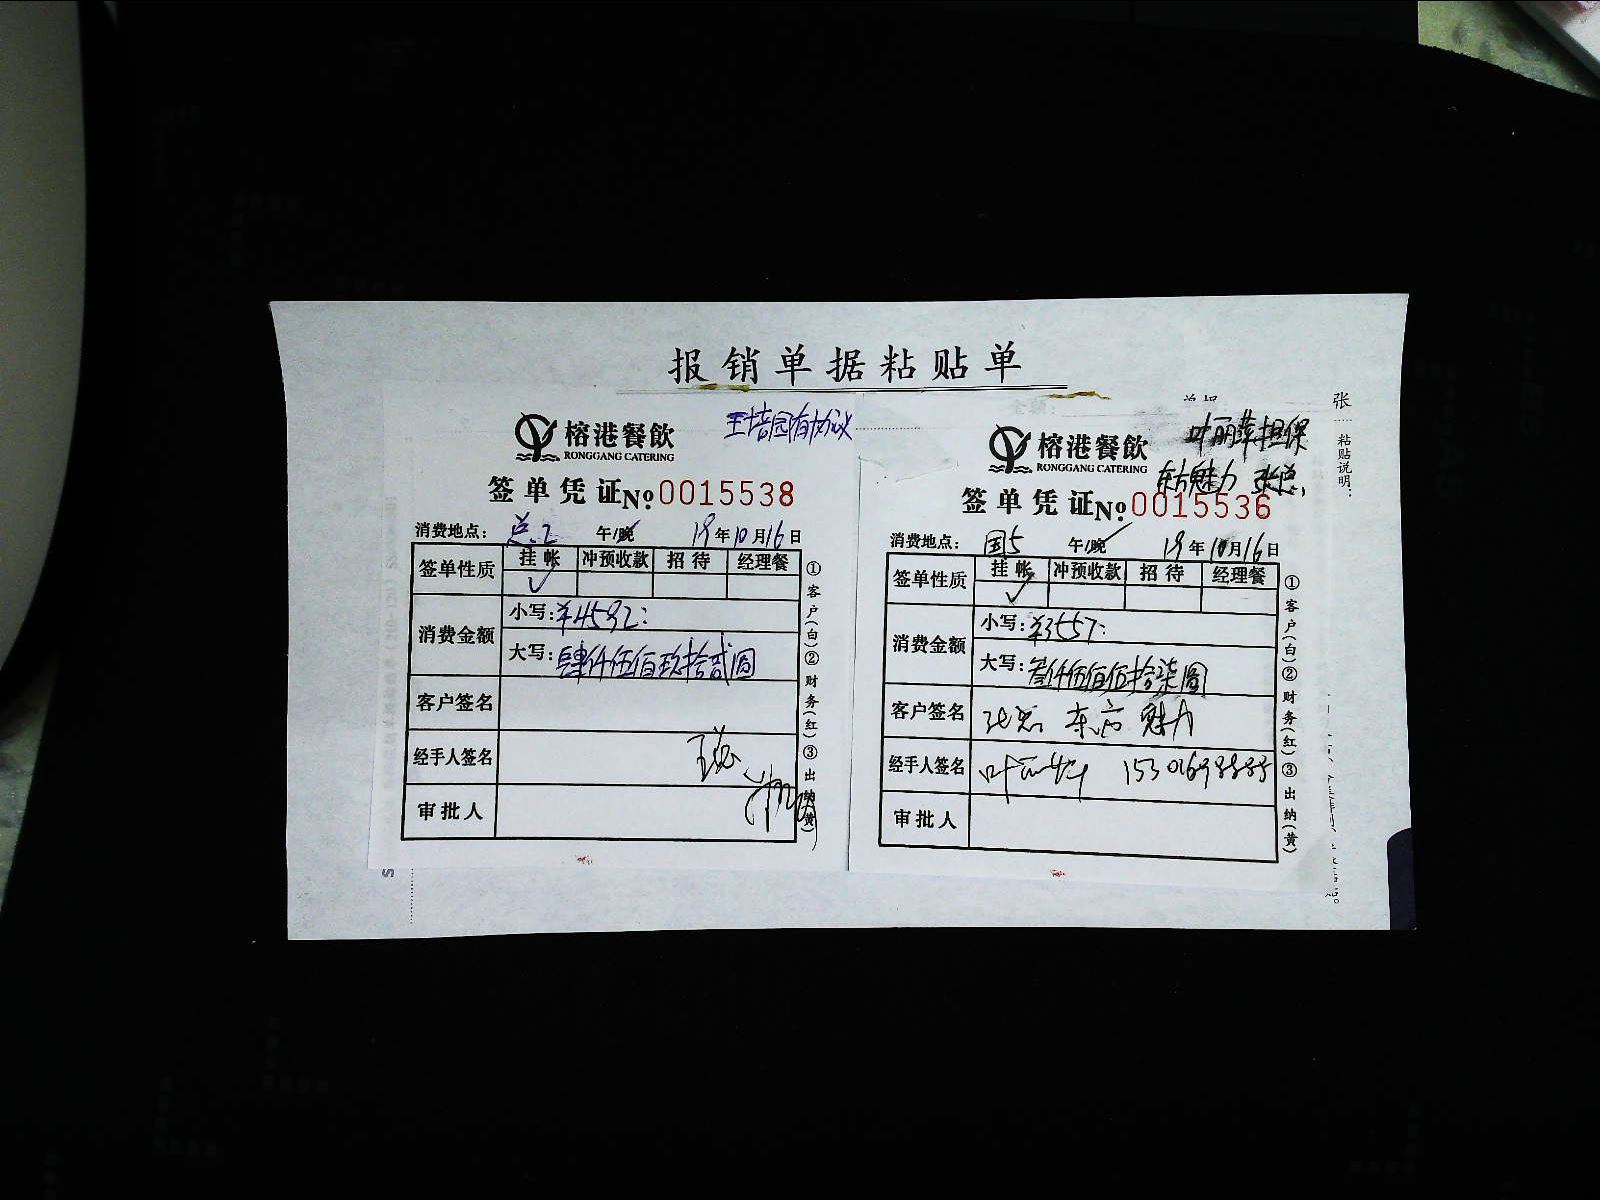 报销单据粘贴单
张
粘贴说明：
王培园有协议
榕港餐飲
RONGGANG CATERING
签单凭证 No. 0015538
消费地点： 总2 午/晚 19年10月16日
签单性质 挂帐 冲预收款 招待 经理餐
✓
消费金额
小写：¥4592：
大写：肆仟伍佰玖拾贰圆
客户签名
经手人签名
审批人
①客户(白)②财务(红)③出纳(黄)
叶丽萍担保
东方魅力 张总
榕港餐飲
RONGGANG CATERING
签单凭证 No. 0015536
消费地点： 国5 午/晚 19年10月16日
签单性质 挂帐 冲预收款 招待 经理餐
✓
消费金额
小写：¥3557：
大写：叁仟伍佰伍拾柒圆
客户签名 张总 东方魅力
经手人签名
审批人
①客户(白)②财务(红)③出纳(黄)